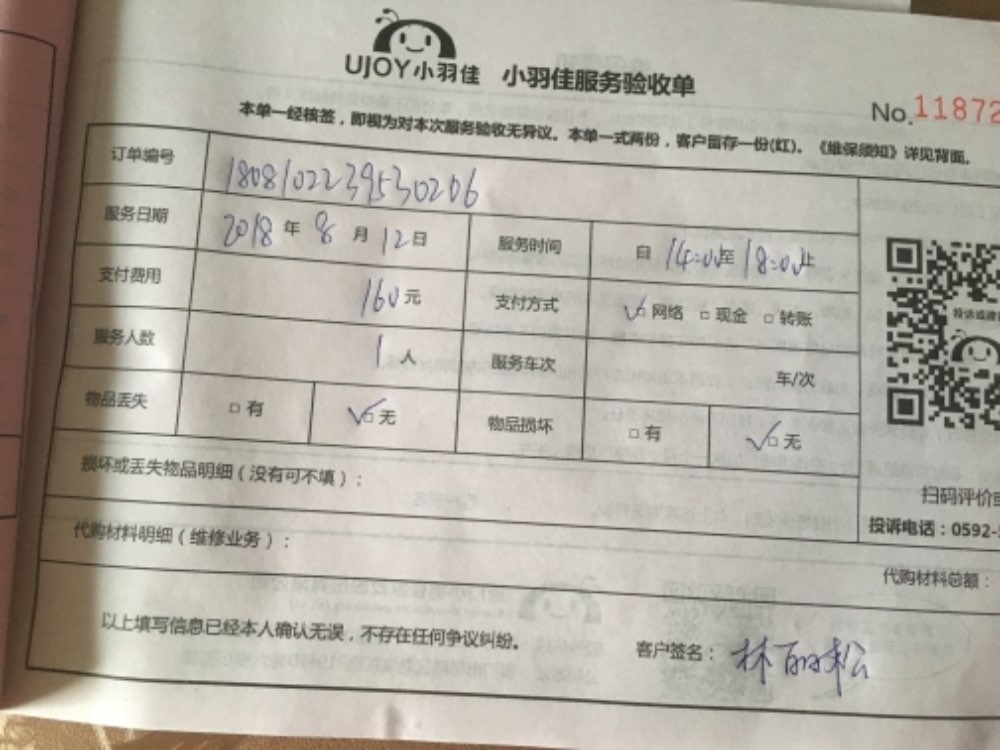 UJOY小羽佳 小羽佳服务验收单
No.11872
本单一经核签，即视为对本次服务验收无异议。本单一式两份，客户留存一份(红)。《维保须知》详见背面。
订单编号 1808102239530206
服务日期 2018年8月12日 服务时间 自14:00至18:00止
支付费用 160元 支付方式 ☑网络 □现金 □转账
服务人数 1人 服务车次 车/次
物品丢失 □有 ☑无 物品损坏 □有 ☑无
扫码评价或
投诉电话：0592-
损坏或丢失物品明细（没有可不填）：
代购材料明细（维修业务）：
代购材料总额：
以上填写信息已经本人确认无误，不存在任何争议纠纷。
客户签名：林